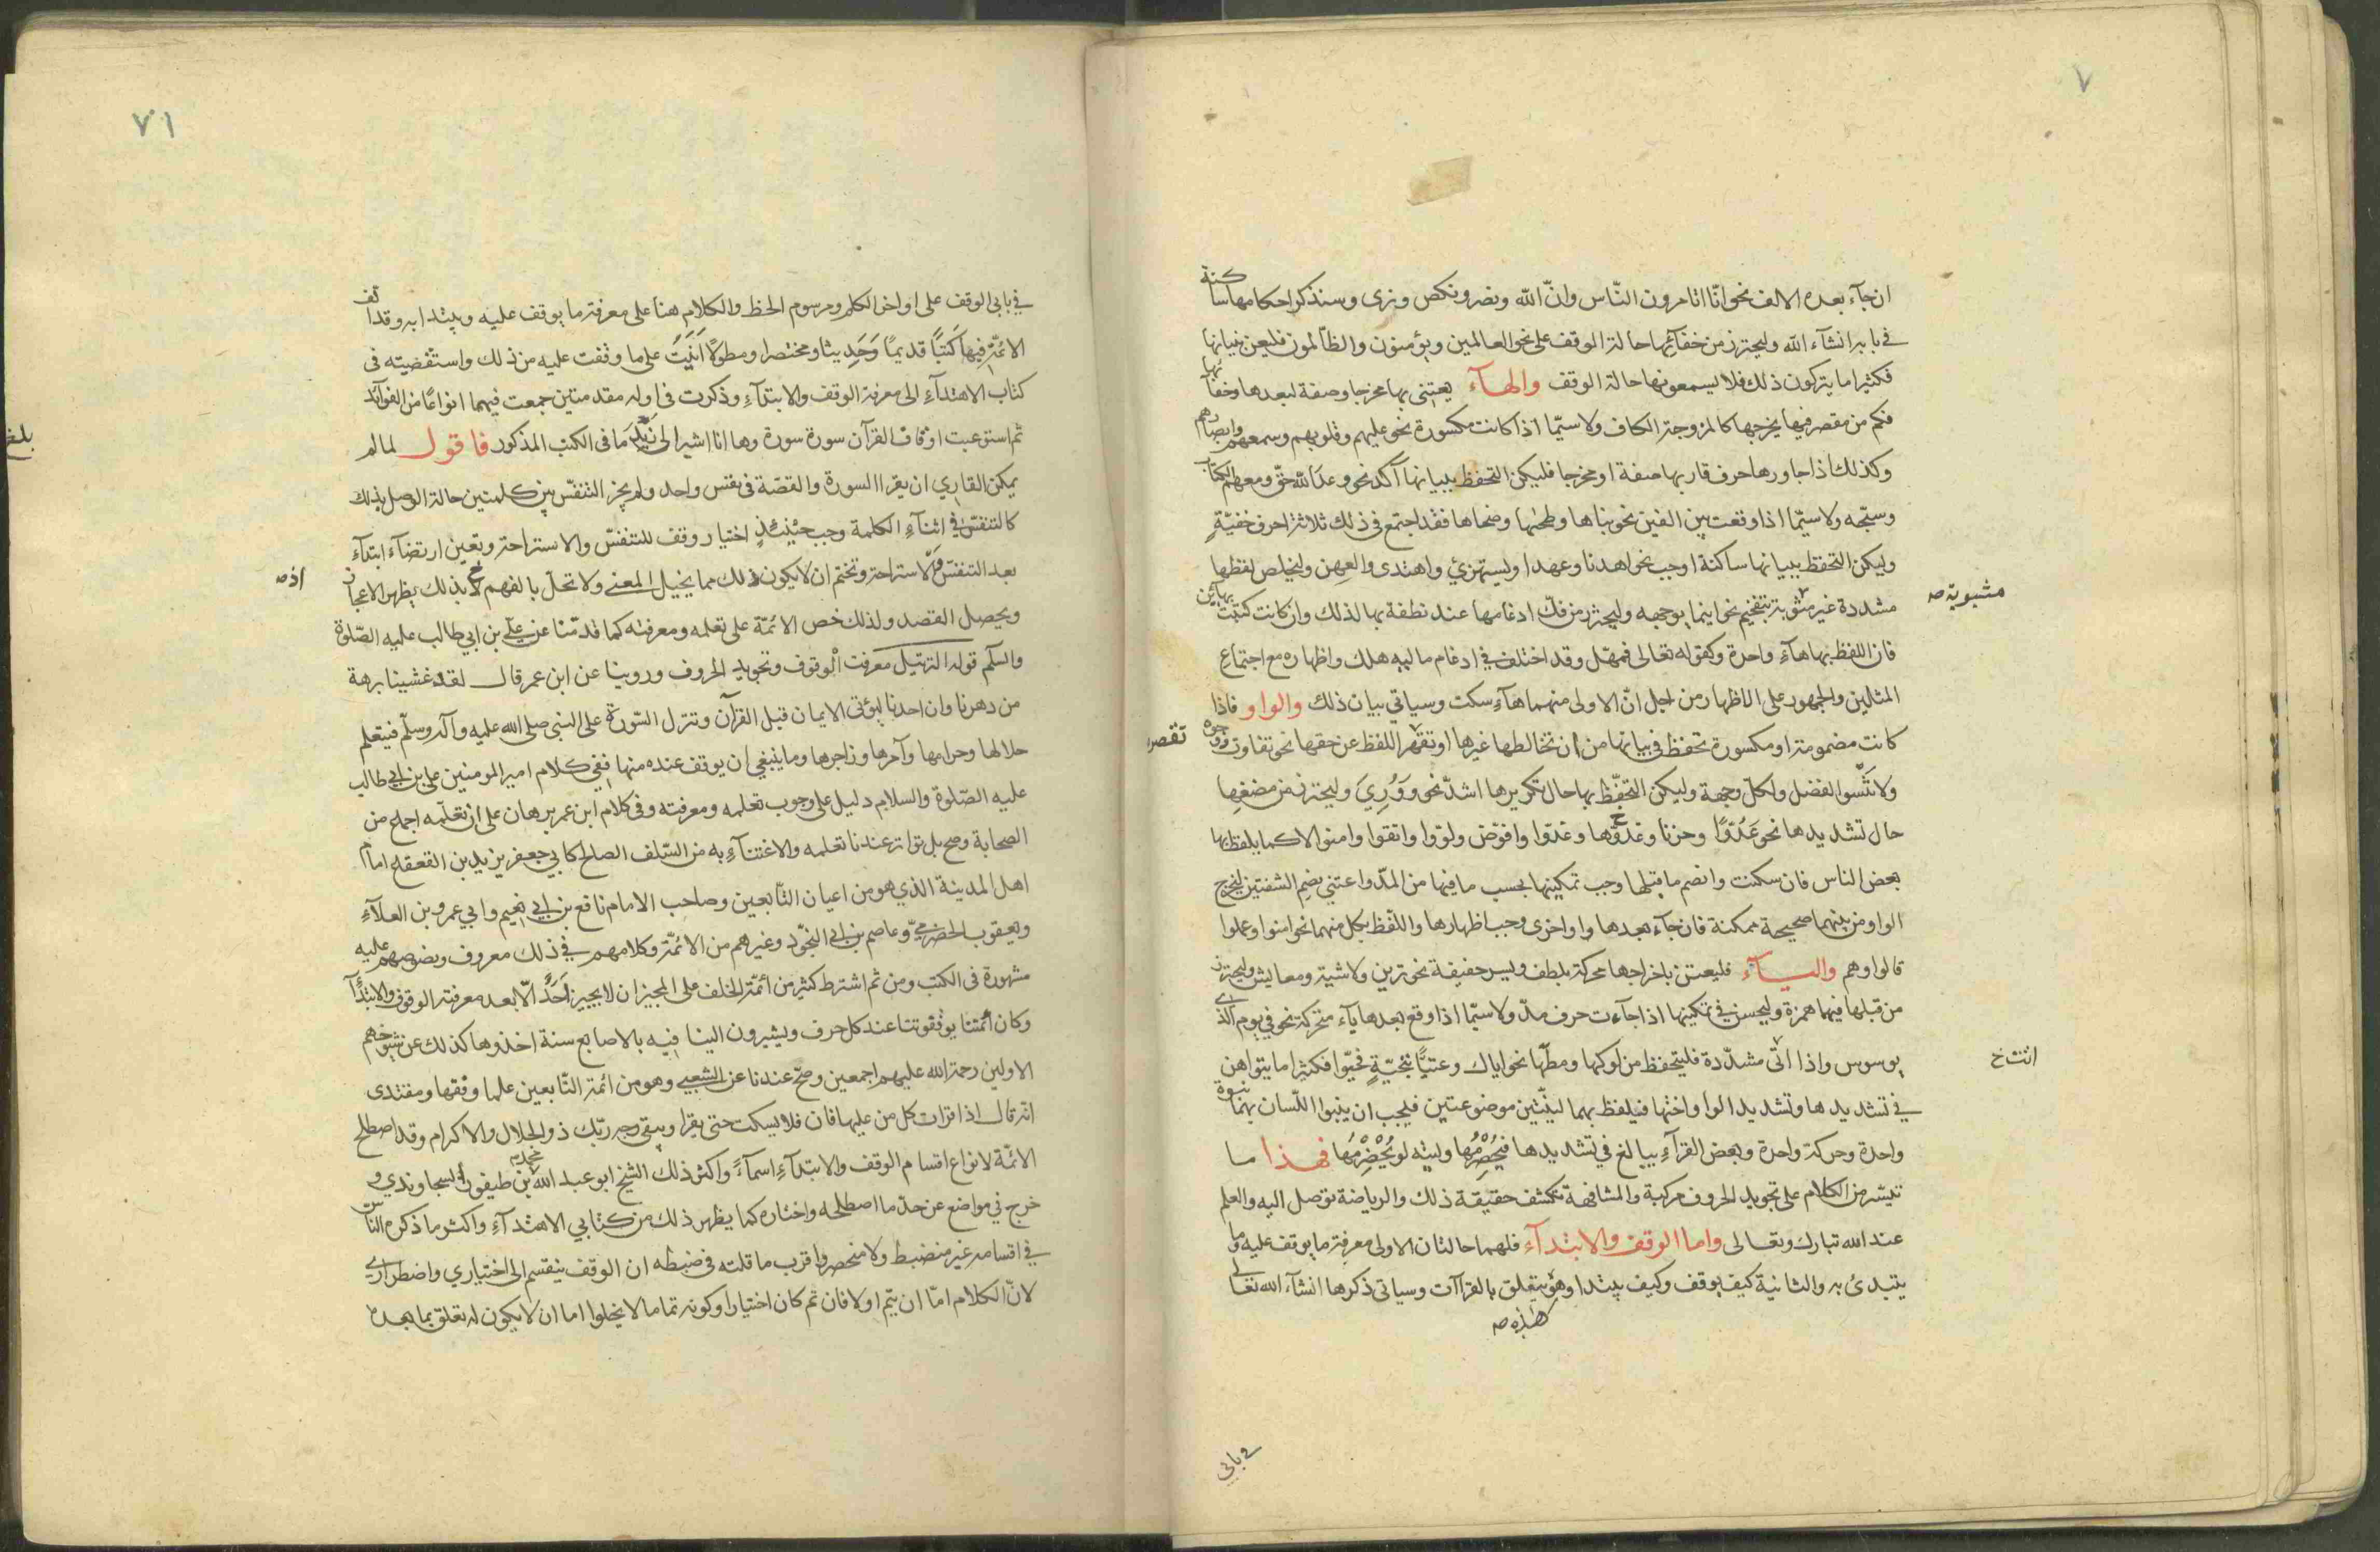 ٧
ان جآء بعده الالف نحو انّا اتامرون النّاس وانّ اللّه ونصر ونكص ونرى وسنذكر احكامها ساكنة
في بابها انشآء اللّه وليحترز من خفآئها حالة الوقف على نحو العالمين ويؤمنون والظّالمون فليعن ببيانها
فكثيرا ما يتركون ذلك فلا يسمعونها حالة الوقف والهآء يعتنى بها مخرجا وصفة لبعدها وخفآئها
فكم من مقصر فيها يخرجها كالمزوجة الكاف ولاسيّما اذا كانت مكسورة نحو عليهم وقلوبهم وسمعهم وابصارهم
وكذلك اذا جاورها حرف قاربها صفة او مخرجا فليكن التحفظ ببيانها آكد نحو وعد اللّه حقّ ومعهم الكتاب
وسبّحه ولاسيّما اذا وقعت بين الفين نحو بناها وطحىها وضحاها فقد اجتمع فى ذلك ثلاثة احرف خفيّةٍ
وليكن التحفظ ببيانها ساكنة اوجب نحو اهدنا وعهدا وليستهزئ واهتدى والعهن وليخلص لفظها
مشددة غير مثوبة بتفخيم نحو اينما يوجهه وليحترز من فكّ ادغامها عند نطقه بها لذلك وان كانت كتبت بهائين
مشبوبة صه
فان اللفظ بها هآءٍ واحدة وكقوله تعالى فمهّل وقد اختلف في ادغام ماليه هلك واظهاره مع اجتماع
المثلين والجمهور على الاظهار من اجل انّ الاولى منهما هآء سكت وسياتي بيان ذلك والواو فاذا
كانت مضمومة او مكسورة تحفظ في بيانها من ان تخالطها غيرها او تقهر اللفظ عن حقها نحو تفاوت ووجوه
تقصر
ولا تَنْسوا الفضل ولكلّ وجهة وليكن التحفّظ بها حال تكريرها اشدّ نحو وَوُرِيَ وليحترز من مضغها
حال تشديدها نحو عَدُوًّا وحزنا وغدوّها وغدوّا وافوّض ولوّوا واتقوا وامنوا لا كما يلفظ بها
بعض الناس فان سكنت وانضم ما قبلها وجب تمكينها بحسب ما فيها من المدّ واعتني بضم الشفتين لتخرج
الواو من بينهما صحيحة ممكنة فان جآء بعدها واو اخرى وجب اظهارها واللّفظ بكل منهما نحو امنوا وعملوا
قالوا وهم واليآء فليعتن باخراجها محركة بلطف ويسر خفيفة نحو ترين ولا شية ومعايش وليحترز
من قبلها فيهما همزة وليحسن في تمكينها اذا جآءت حرف مدّ ولاسيّما اذا وقع بعدها يآء متحركة نحو في يوم الذي
يوسوس واذا اتى مشدّدة فليتحفظ من لوكها ومطّها نحو اياك وعتيًّا بتحيّةٍ فحيّوا فكثيرا ما يتواهن
اتت خ
في تشديدها وتشديد الواو اختها فيلفظ بهما لينّتين موضوعتين فيجب ان ينبوا اللّسان بهما نبوة
واحدة وحركة واحدة وبعض القرآء يبالغ في تشديدها فيُحَصْرِمُها وليته لو يُحَضْرِمُها فهذا ما
تيسّر من الكلام على تجويد الحروف مركبة والمشافهة تكشف حقيقة ذلك والرياضة توصل اليه والعلم
عند اللّه تبارك وتعالى واما الوقف والابتدآء فلهما حالتان الاولى معرفة ما يوقف عليه وما
يتبدئ به والثانية كيف يوقف وكيف يبتدا وهو يتعلق بالقراآت وسياتى ذكرها انشآء اللّه تعالى
هذه صه
في بابي
٧١
في بابي الوقف على اواخر الكلم ومرسوم الخط والكلام هنا على معرفة ما يوقف عليه ويبتدا به وقد الف
الائمّة فيها كُتُبًا قديمًا وَحَدِيثا ومختصرا ومطولا اتَيْتُ على ما وقفت عليه من ذلك واستقضيته فى
كتاب الاهتدآءِ الى معرفة الوقف والابتدآءِ وذكرت فى اوله مقدمتين جمعت فيهما انواعًا من الفوآئد
ثم استوعبت اوقاف القرآن سورة سورة وها انا اشير الى نُبَذٍ ما فى الكتب المذكور فاقول لما لم
بلغ
يمكن القاري ان يقرا السورة والقصّة فى نفس واحد ولم يجز التنفّس بين كلمتين حالة الوصل بذلك
كالتنفسّ في اثنآءِ الكلمة وجب حيْنئذٍ اختيار وقف للتنفسّ والاستراحة وتعين ارتضآء ابتدآءِ
بعد التنفسّ والاستراحة وتختم ان لا يكون ذلك مما يخيل المعنى ولا تحلّ بالفهم لا بذلك يظهر الاعجاز
اذ صه
ويحصل القصد ولذلك خص الائمّة على تعلمه ومعرفته كما قدمّنا عن علي بن ابي طالب عليه الصّلوة
والسلم قوله الترتيل معرفت الْوقوف وتجويد الحروف وروينا عن ابن عمر قال لقد غشينا برهة
من دهرنا وان احدنا ليؤتى الايمان قبل القرآن وتنزل السّورة على النبى صلى اللّه عليه وآله وسلّم فيتعلم
حلالها وحرامها وآمرها وزاجرها وما ينبغي ان يوقف عنده منها ففي كلام امير المومنين على بن ابي طالب
عليه الصّلوة والسلام دليل على وجوب تعلمه ومعرفته وفى كلام ابن عمر برهان على ان تعلّمه اجماع من
الصحابة وصح بل تواتر عندنا تعلمه والاعتنآءِ به من السّلف الصالح كابي جعفر يزيد بن القعقاع امام
اهل المدينة الذي هو من اعيان التّابعين وصاحب الامام نافع بن ابي نعيم وابي عمرو بن العلآءِ
ويعقوب الحضرميّ وعاصم بن ابي النجّود وغيرهم من الائمّة وكلامهم في ذلك معروف ونصوصهم عليه
مشهورة فى الكتب ومن ثم اشترط كثير من أئمّة الخلف على المجيز ان لا يجيز احَدًا الّا بعد معرفته الوقوف والابتدآء
وكان أئمّتنا يوقفوتنا عند كل حرف ويشيرون الينا فيه بالاصابع سنة اخذوها كذلك عن شيوخهم
الاولين رحمة اللّه عليهم اجمعين وصحّ عندنا عن الشعبي وهو من ائمّة التّابعين علما وفقها ومقتدى
انّه قال اذا قرات كل من عليها فان فلا يسكت حتى يقرا ويبقى وجه ربّك ذو الجلال والاكرام وقد اصطلح
الائمّة لانواع اقسام الوقف والابتدآءِ اسمآءً واكثر ذلك الشيخ ابو عبد اللّه محمد بن طيفور السجاوندي و
خرج في مواضع عن حدّ ما اصطلحه واختاره كما يظهر ذلك من كتابي الاهتدآءِ واكثر ما ذكره النّاس
في اقسامه غير منضبط ولا منحصر واقرب ما قلته فى ضبطه ان الوقف ينقسم الى اختياري واضطراري
لانّ الكلام امّا ان يتم او لا فان تم كان اختياريا وكونه تماما لا يخلوا اما ان لا يكون له تعلق بما بعده